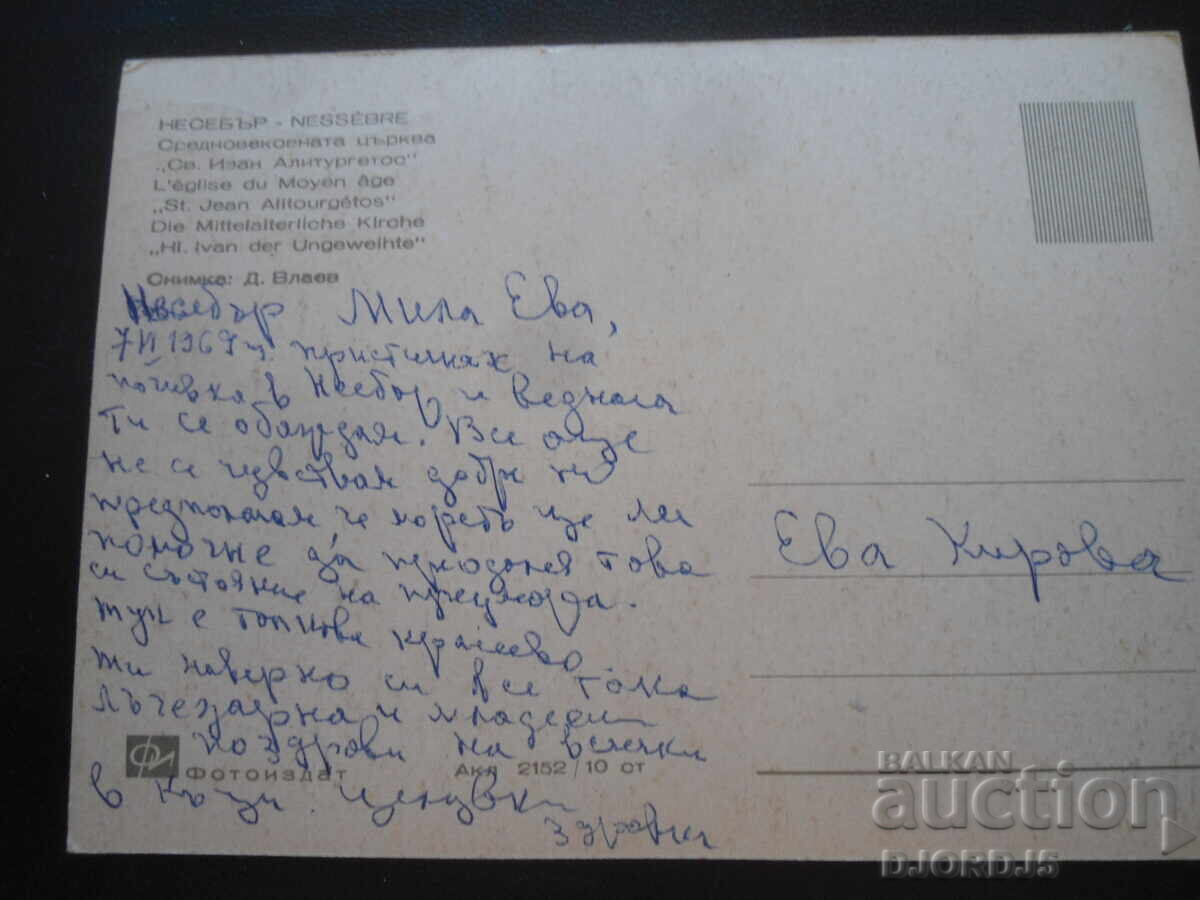 НЕСЕБЪР - NESSÈBRE
Средновековната църква
„Св. Иван Алитургетос"
L'église du Moyen âge
„St. Jean Alitourgétos"
Die Mittelalterliche Kirche
„Hl. Ivan der Ungeweihte"
Снимка: Д. Влаев
Несебър Мила Ева,
7 VI 1969 г. пристигнах на
почивка в Несебър и веднага
ти се обаждам. Все още
не се чувствам добре но
предполагам че морето ще ми
помогне да това
си състояние на
тук е толкова красиво.
ти наверно си все така
лъчезарна и
поздрави на всички
в къщи. целувки
Здравка
Ева Кирова
Фотоиздат Акл 2152/10 ст
BALKAN
auction
DJORDJ5